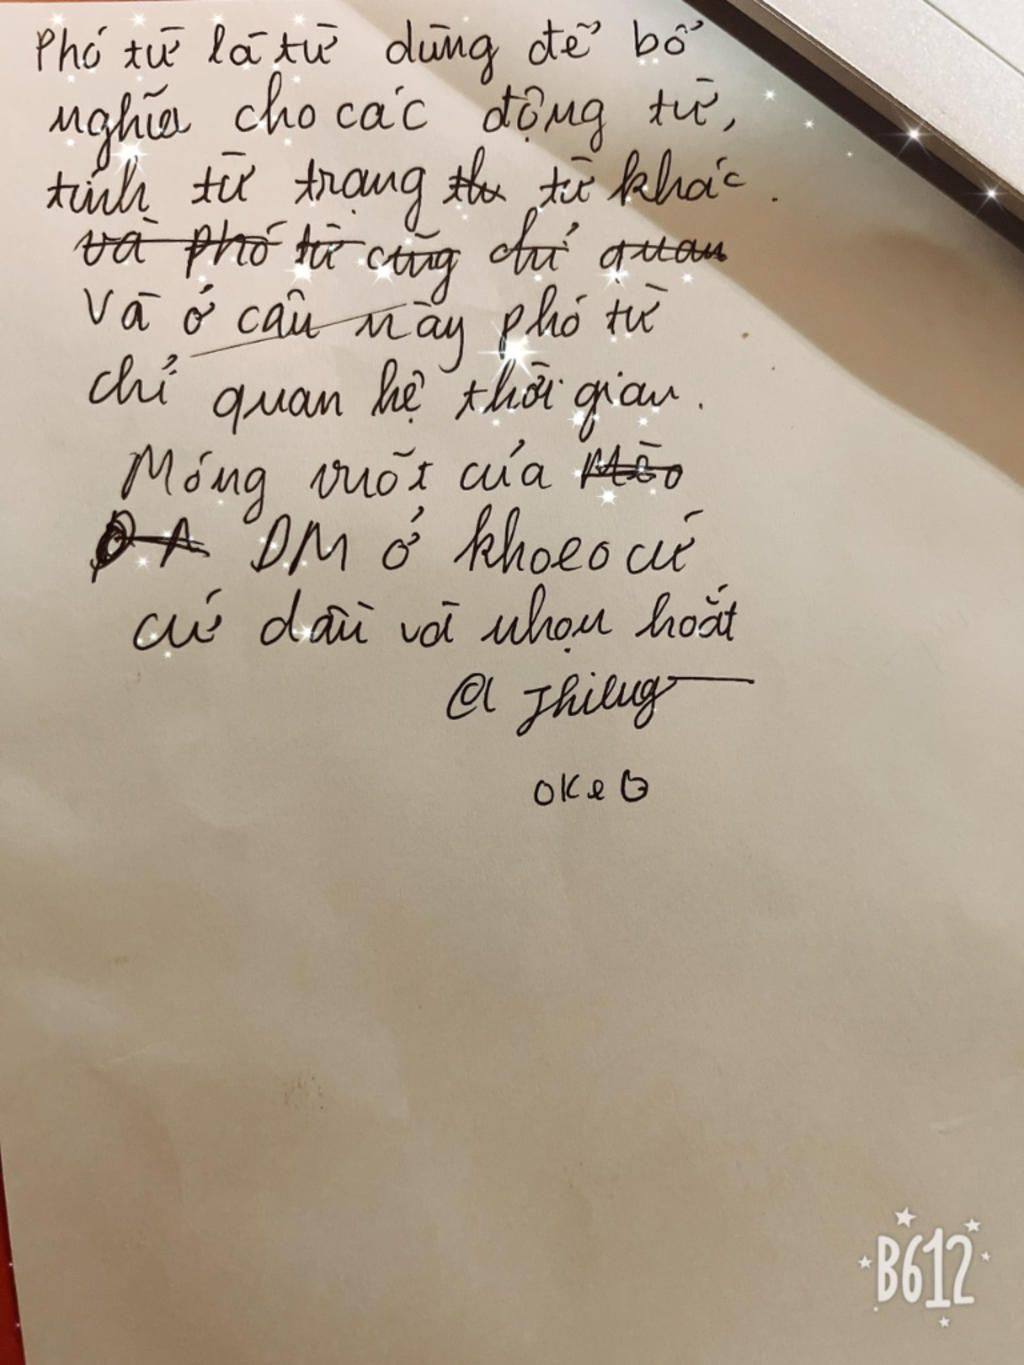 Phó từ là từ dùng để bổ
nghĩa cho các động từ,
tính từ trạng thu từ khác.
và phó từ cũng chỉ quan
Và ở câu này phó từ
chỉ quan hệ thời gian.
Móng vuốt của Mèo
DM ở khoeo cứ
cứ dài và nhọn hoắt
@ Jhiung
oke
B612